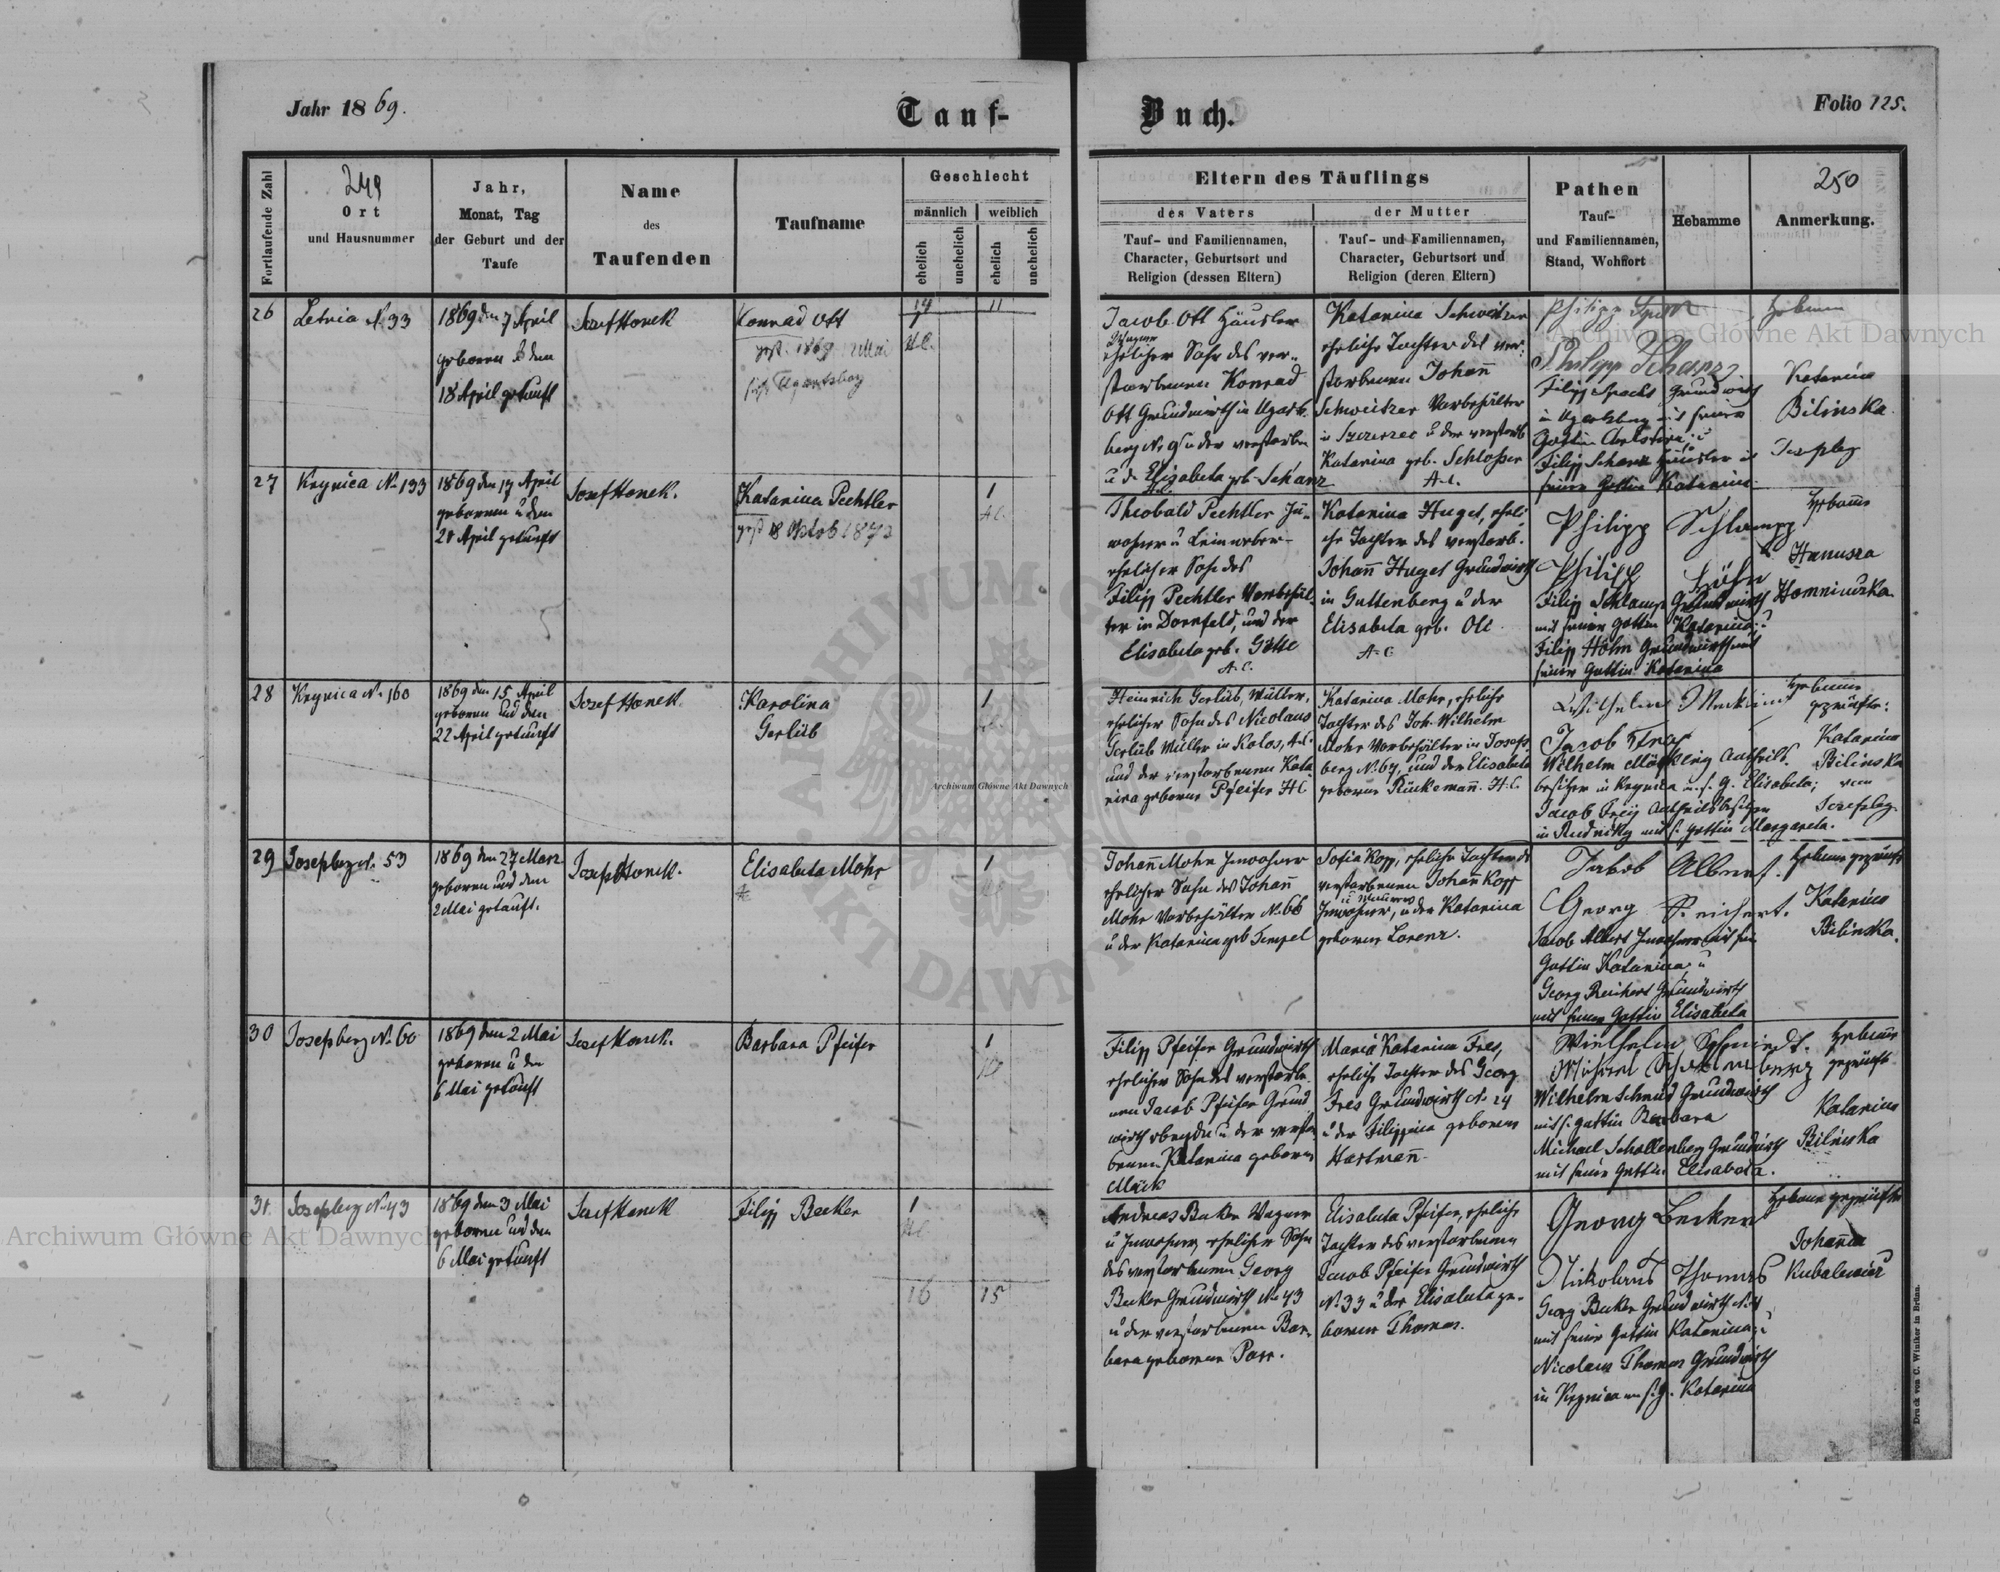 Jahr 1869.
Tauf-
Buch.
Folio 125.
Fortlaufende Zahl
249
Ort
und Hausnummer
Jahr,
Monat, Tag
der Geburt und der
Taufe
Name
des
Taufenden
Taufname
Geschlecht
männlich
weiblich
ehelich
unehelich
ehelich
unehelich
Eltern des Täuflings
des Vaters
der Mutter
Tauf- und Familiennamen,
Character, Geburtsort und
Religion (dessen Eltern)
Tauf- und Familiennamen,
Character, Geburtsort und
Religion (deren Eltern)
Pathen
Tauf-
und Familiennamen,
Stand, Wohnort
Hebamme
250
Anmerkung.
14
11
26
Letnia No 33
1869 den 7 April
geboren u den
18 April getauft
Josef Honek
Konrad Ott
gest. 1869 Mai
Ugartsberg
1
H.C.
Jacob Ott Häusler
ehelicher Sohn des ver-
storbenen Konrad
Ott Grundwirth in Ugarts-
berg No 9 u der verstorben
u d Elisabeta geb. Schanz
Katarina Schweitzer
eheliche Tochter des ver-
storbenen Johann
Schweitzer Vorbehälter
in Szczerzec u der verstorb
Katarina geb. Schlosser
A.C.
Philipp
Philipp Schanz
Filipp Grundwirth
in Ugartsberg mit seiner
Gattin u
Filipp Schanz Häusler u
seiner Gattin Katarina
Hebamme
Katarina
Bilinska
Josefsbg
27
Krynica No 133
1869 den 17 April
geboren u den
21 April getauft
Josef Honek.
Katarina Pechtler
gest 18 Oktob 1873
1
A.C.
Theobald Pechtler In-
wohner u Leinweber
ehelicher Sohn des
Filipp Pechtler Vorbehäl-
ter in Dornfeld, und der
Elisabeta geb. Götte
A.C.
Katarina Hugel, eheli-
che Tochter des verstorb.
Johann Hugel Grundwirth
in Guttenberg u der
Elisabeta geb. Ott
A.C
Philipp Schlamp
Philipp Höhn
Filipp Schlamp Grundwirth
mit seiner Gattin Katarina u
Filipp Höhn Grundwirth mit
seiner Gattin Katarina
Hebamme
Hanusza
Homniuszka
28
Krynica No. 160
1869 den 15 April
geboren und den
22 April getauft
Josef Honek
Karolina
Gerlüb
1
Heinrich Gerlüb, Müller,
ehelicher Sohn des Nicolaus
Gerlüb Müller in Kolos, A.C.
und der verstorbenen Kata-
rina geborne Pfeifer H.C
Katarina Mohr, eheliche
Tochter des Joh. Wilhelm
Mohr Vorbehälter in Josefs-
berg No. 67, und der Elisabeta
geborne Rückemann. H.C.
Wilhelm
Jacob Frey
Wilhelm Antheils-
besitzer in Krynica u. s. G. Elisabeta;
Jacob Frey Antheilsbesitzer
in Rudniky mit s. Gattin Margareta.
Hebamme
geprüfte:
Katarina
Bilinska
von
Josefsbg.
29
Josefsberg No. 53
1869 den 27 Marz
geboren und den
2 Mai getauft.
Josef Honek.
Elisabeta Mohr
1
Johann Mohr Inwohner
ehelicher Sohn des Johann
Mohr Vorbehälter No. 66
u der Katarina geb Tempel
Sofia Kopp, eheliche Tochter des
verstorbenen Johann Kopp
Inwohner, u der Katarina
geborne Lorenz.
Jakob Albert.
Georg Reichert.
Jacob Albert Inwohner mit sein
Gattin Katarina u
Georg Reichert Grundwirth
mit seiner Gattin Elisabeta
Hebamme geprüfte
Katarina
Bilinska.
30
Josefsberg No. 60
1869 den 2 Mai
geboren u den
6 Mai getauft
Josef Honek.
Barbara Pfeifer
1
Filipp Pfeifer Grundwirth
ehelicher Sohn des verstorbe-
nen Jacob Pfeifer Grund
wirth ebenda u der verstor-
benen Katarina geborne
Mück
Maria Katarina Fres,
eheliche Tochter des Georg
Fres Grundwirth No 24
u der Filippina geborene
Hartmann.
Wielhelm Schmiedt.
Michael Schallenberg
Wilhelm Schmid Grundwirth
mit s. Gattin Barbara
Michael Schallenberg Grundwirth
mit seiner Gattin Elisabeta.
Hebamme
geprüft
Katarina
Bilinska
31.
Josefsberg No 43
1869 den 3 Mai
geboren und den
6 Mai getauft
Josef Honek
Filipp Becker
1
16
15
Andreas Becker Wagner
u Inwohner, ehelicher Sohn
des verstorbenen Georg
Becker Grundwirth No 43
u der verstorbenen Bar-
bara geborene Porr.
Elisabeta Pfeifer, eheliche
Tochter des verstorbenen
Jacob Pfeifer Grundwirth
No 33 u der Elisabeta ge-
borene Thomas.
Georg Becker
Nickolaus Thomas
Georg Becker Grundwirth
mit seiner Gattin Katarina; u
Nicolaus Thomas Grundwirth
in Krynica mit s. G. Katarina
Hebamme geprüfte
Johanna
Kubalewicz
Druck von C. Winiker in Brünn.
Archiwum Główne Akt Dawnych
Archiwum Główne Akt Dawnych
Archiwum Główne Akt Dawnych
ARCHIWUM GŁÓWNE AKT DAWNYCH